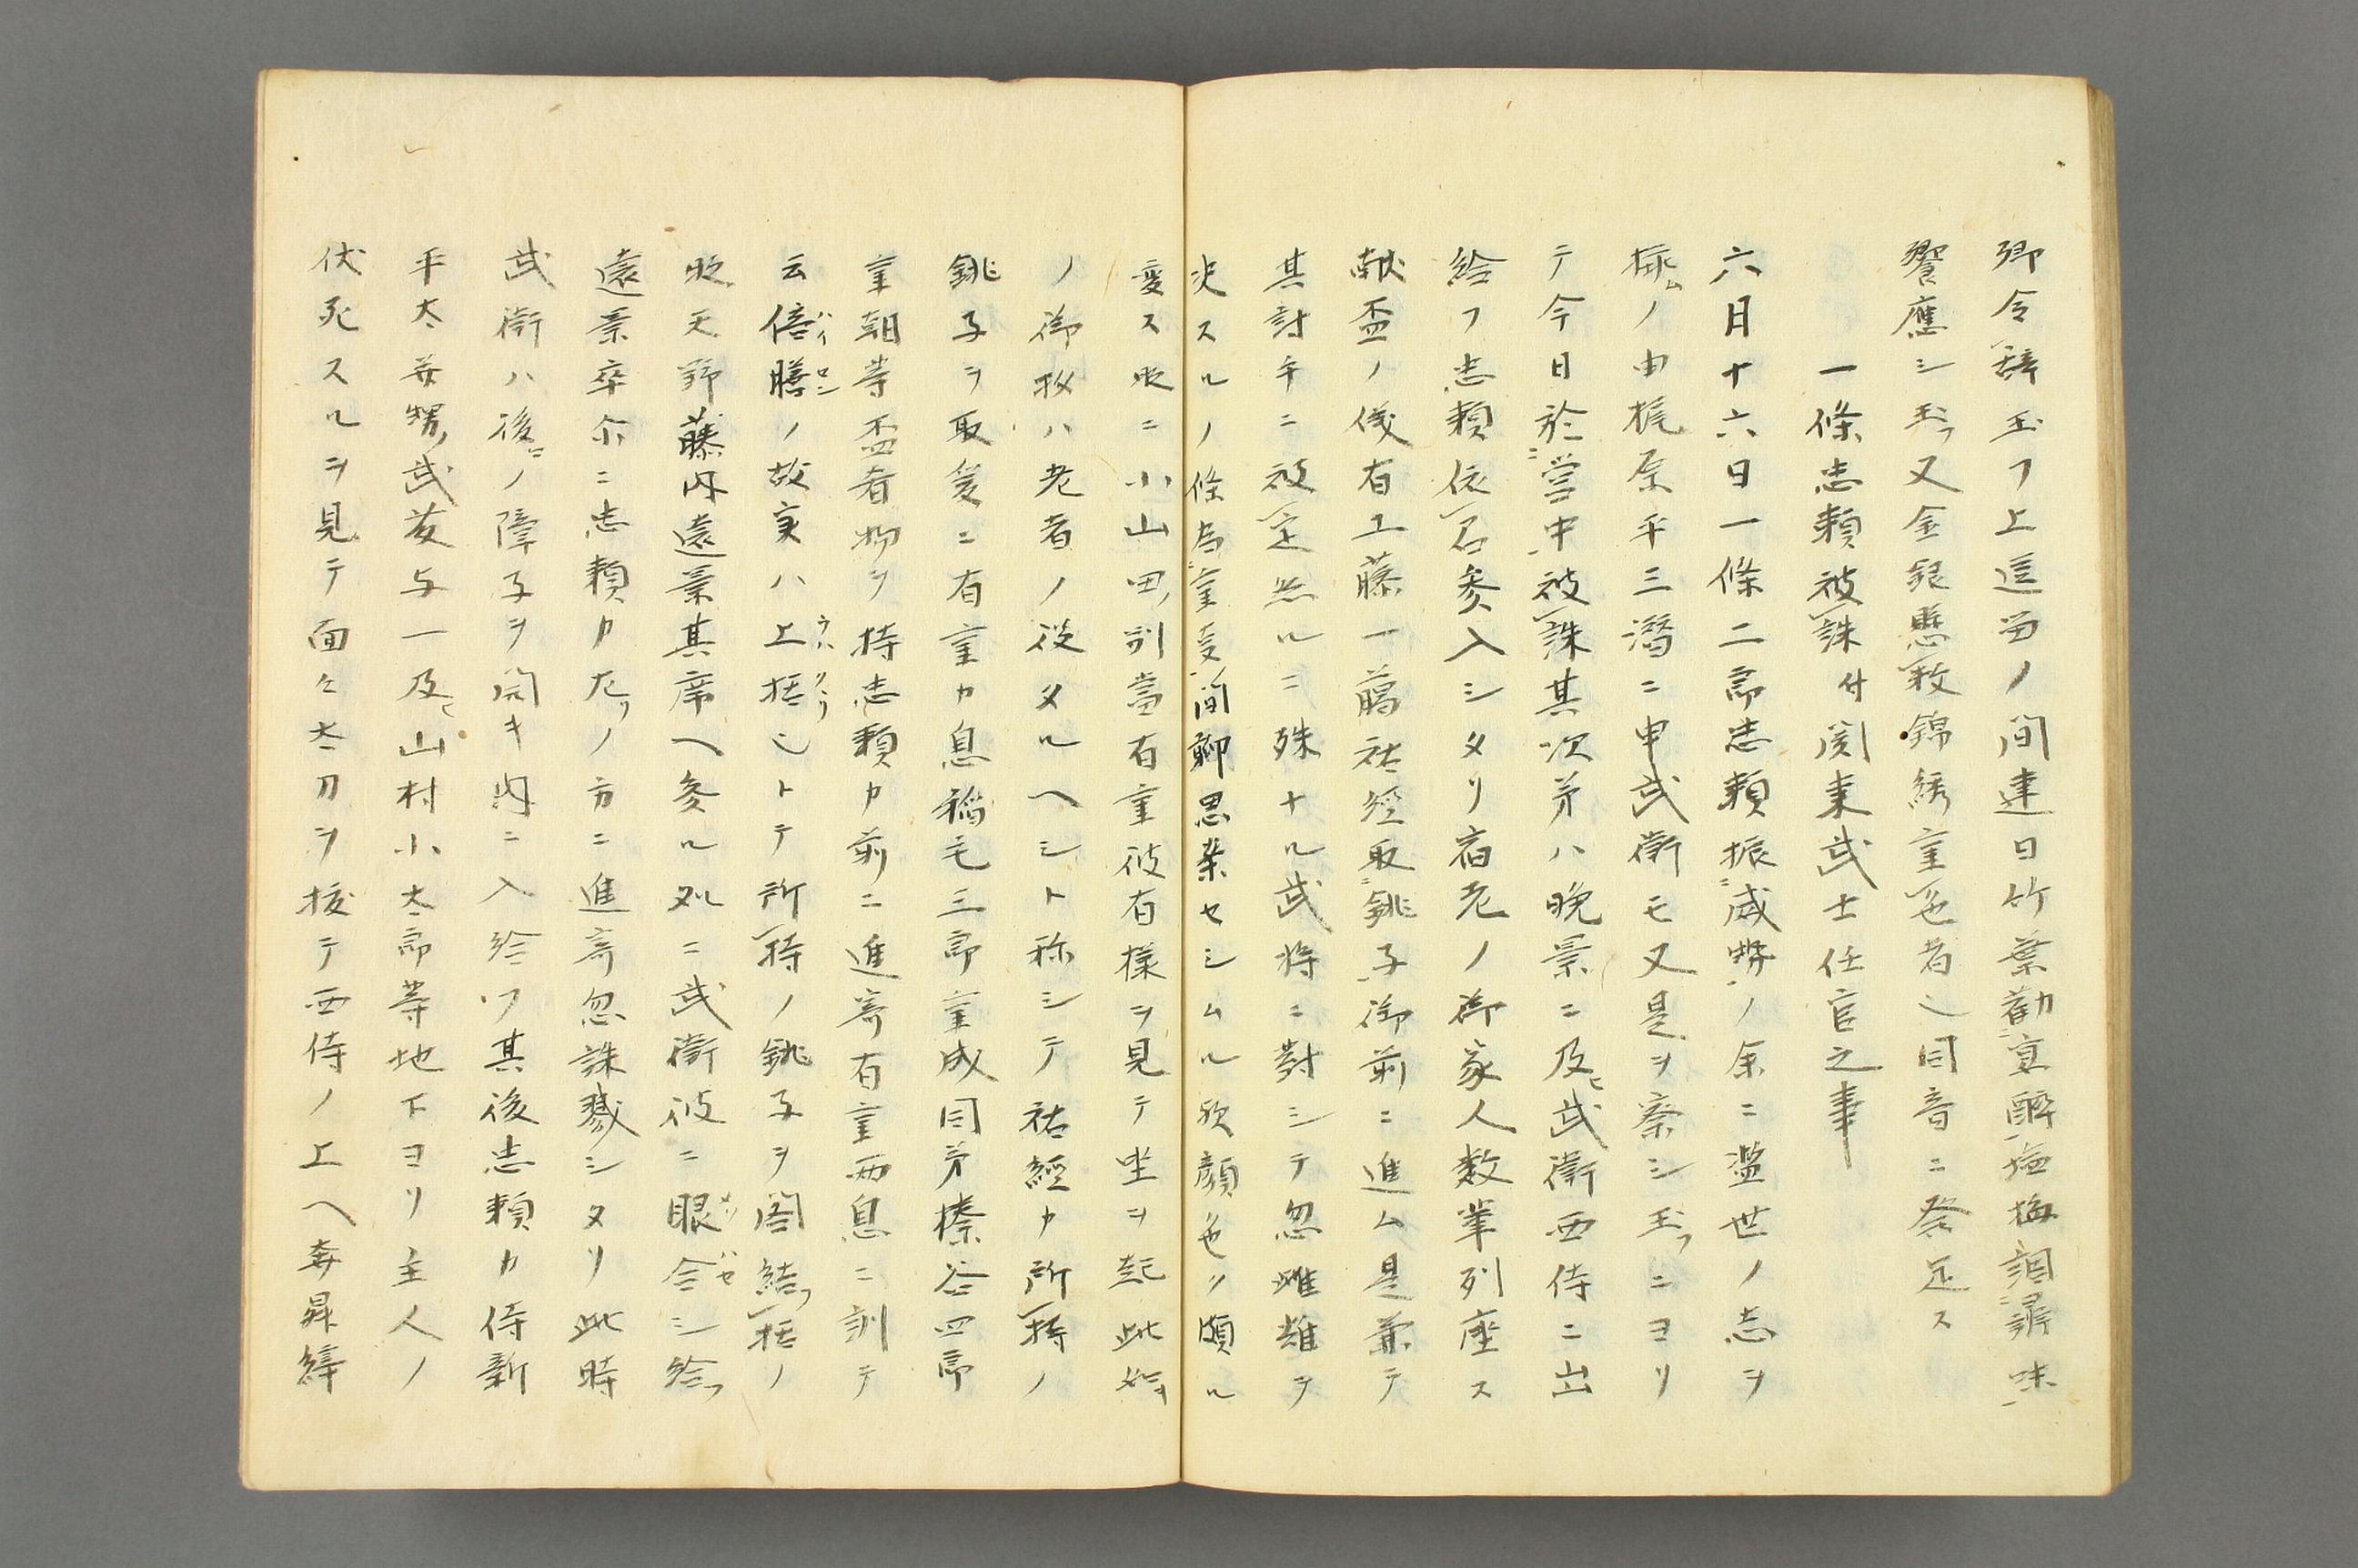 卿令辞玉フ上逗留ノ間連日竹葉勧宴酔塩梅調濤味
饗應シ玉フ又金銀懸数錦繍重色者也同音ニ発足ス
一條忠頼被誅付関東武士任官之事
六月十六日一條二郎忠頼振威勢ノ余ニ濫世ノ志ヲ
挿ムノ由梶原平三潜ニ申武衛モ又是ヲ察シ玉フニヨリ
テ今日於営中被誅其次第ハ晩景ニ及ヒ武衛西侍ニ出
給フ忠頼依召参入シタリ宿老ノ御家人数輩列座ス
献盃ノ儀有工藤一臈祐経取銚子御前ニ進ム是兼テ
其討手ニ被定然ルニ殊ナル武将ニ對シテ忽雌雄ヲ
决スルノ條為重支間聊思案セシムル欤顔色ソ頗ル
変ス此ニ小山田別當有重彼有樣ヲ見テ坐ヲ起此如キ
ノ御杓ハ老者ノ役タルヘシト称シテ祐経カ所持ノ
銚子ヲ取爰ニ有重カ息稲毛三郎重成同弟榛谷四郎
重朝等盃肴物ヲ持忠頼カ前ニ進寄有重両息ニ訓テ
云倍膳ノ故実ハ上括也トテ所持ノ銚子ヲ閣結フ括ノ
此天野藤内遠景其席ヘ参ル処ニ武衛彼ニ眼合シ給フ
遠景卒尒ニ忠頼カ左リノ方ニ進寄忽誅戮シタリ此時
武衛ハ後ニノ障子ヲ開キ内ニ入給フ其後忠頼カ侍新
平太并甥ノ武藤与一及ヒ山村小太郎等地下ヨリ主人ノ
伏死スルヲ見テ面々太刀ヲ拔テ西侍ノ上ヘ奔昇縡